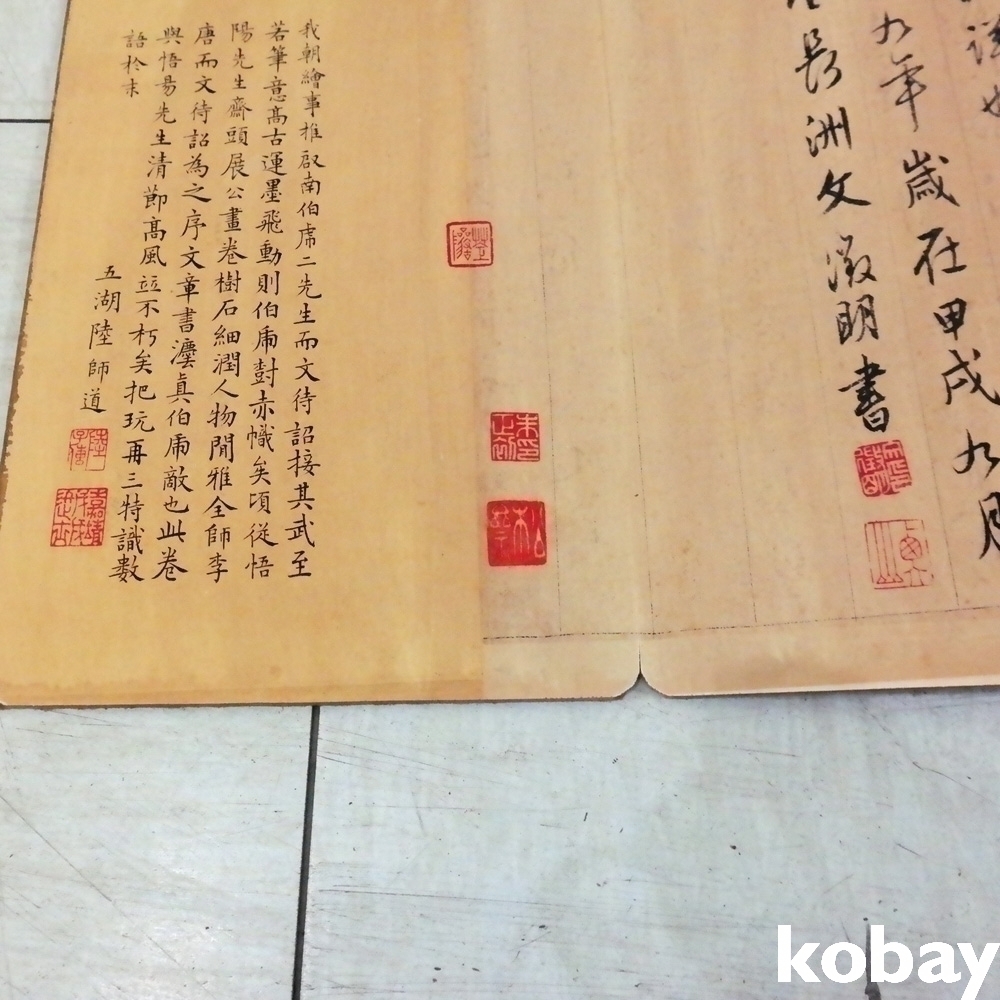 九年歲在甲戌九月
長洲文徵明書
我朝繪事推啟南伯虎二先生而文待詔接其武至
若筆意高古運墨飛動則伯虎對赤幟矣頃從悟
陽先生齋頭展公畫卷樹石細潤人物閒雅全師李
唐而文待詔為之序文章書灋真伯虎敵也此卷
與悟昜先生清節高風竝不朽矣把玩再三特識數
語於末
五湖陸師道
kobay